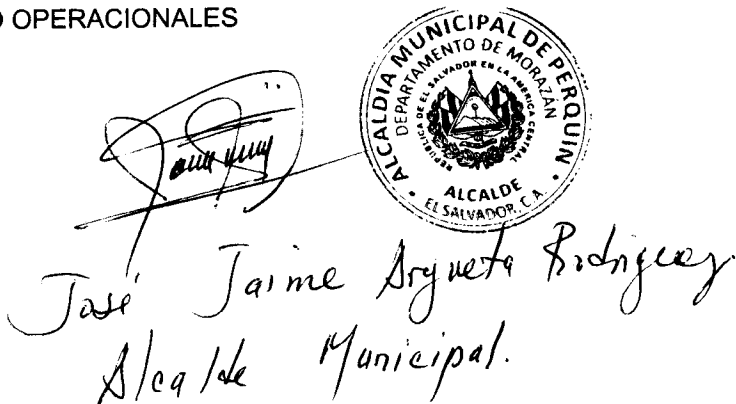 O OPERACIONALES
ALCALDIA MUNICIPAL DE PERQUIN
DEPARTAMENTO DE MORAZÁN
REPUBLICA DE EL SALVADOR EN LA AMERICA CENTRAL
ALCALDE
EL SALVADOR, C.A.
José Jaime Argueta Rodriguez.
Alcalde Municipal.